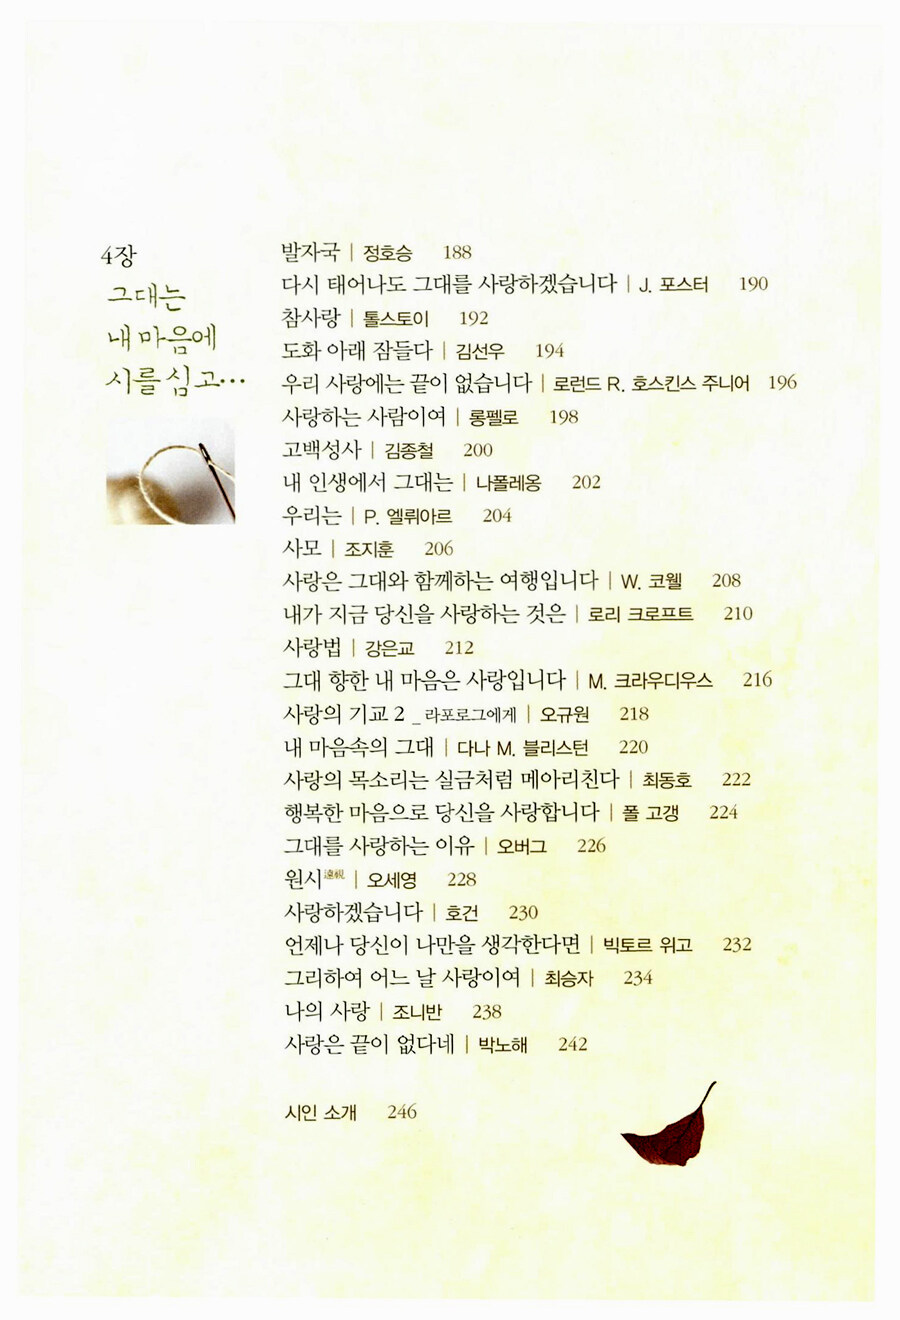 4장
그대는
내 마음에
시를 심고…
발자국 | 정호승 188
다시 태어나도 그대를 사랑하겠습니다 | J. 포스터 190
참사랑 | 톨스토이 192
도화 아래 잠들다 | 김선우 194
우리 사랑에는 끝이 없습니다 | 로런드 R. 호스킨스 주니어 196
사랑하는 사람이여 | 롱펠로 198
고백성사 | 김종철 200
내 인생에서 그대는 | 나폴레옹 202
우리는 | P. 엘뤼아르 204
사모 | 조지훈 206
사랑은 그대와 함께하는 여행입니다 | W. 코웰 208
내가 지금 당신을 사랑하는 것은 | 로리 크로프트 210
사랑법 | 강은교 212
그대 향한 내 마음은 사랑입니다 | M. 크라우디우스 216
사랑의 기교 2 _ 라포로그에게 | 오규원 218
내 마음속의 그대 | 다나 M. 블리스턴 220
사랑의 목소리는 실금처럼 메아리친다 | 최동호 222
행복한 마음으로 당신을 사랑합니다 | 폴 고갱 224
그대를 사랑하는 이유 | 오버그 226
원시遠視 | 오세영 228
사랑하겠습니다 | 호건 230
언제나 당신이 나만을 생각한다면 | 빅토르 위고 232
그리하여 어느 날 사랑이여 | 최승자 234
나의 사랑 | 조니반 238
사랑은 끝이 없다네 | 박노해 242
시인 소개 246